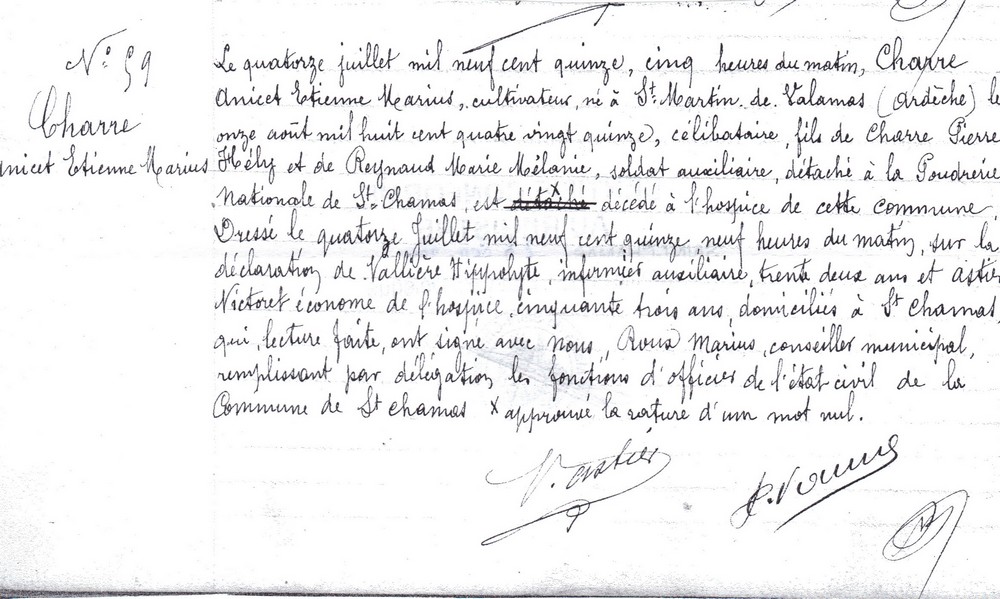 N° 59
Charre
Anicet Etienne Marius
Le quatorze juillet mil neuf cent quinze, cinq heures du matin, Charre
Anicet Etienne Marius, cultivateur, né à St. Martin de Valamas (Ardèche) le
onze août mil huit cent quatre vingt quinze, célibataire, fils de Charre Pierre
Hély et de Reynaud Marie Mélanie, soldat auxiliaire, détaché à la Poudrerie
Nationale de St. Chamas, est détaché x décédé à l'hospice de cette commune
Dressé le quatorze Juillet mil neuf cent quinze neuf heures du matin, sur la
déclaration de Vallière Hippolyte, infirmier auxiliaire, trente deux ans et Astier
Victor et économe de l'hospice, cinquante trois ans, domiciliés à St Chamas,
qui, lecture faite, ont signé avec Nous, Roux Marius, conseiller municipal,
remplissant par délégation les fonctions d'officier de l'état civil de la
Commune de St Chamas x approuvé la rature d'un mot nul.
V. Astier